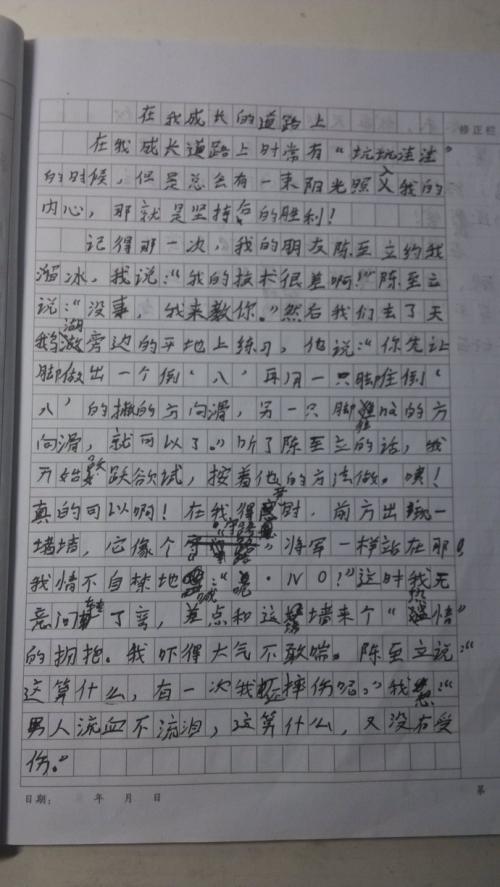 在我成长的道路上
修正栏
在我成长道路上时常有“坑坑洼洼”
的时候，但是总会有一束阳光照入我的
内心，那就是坚持后的胜利！
记得那一次，我的朋友陈至立约我
溜冰，我说：“我的技术很差啊！”陈至立
说：“没事，我来教你。”然后我们去了天
鹅湖旁边的平地上练习，他说：“你先让
脚做出一个倒‘八’再用一只脚往倒‘
八’的撇的方向滑，另一只脚往捺的方
向滑，就可以了。”听了陈至立的话，我
开始跃跃欲试，按着他的方法做。咦！
真的可以啊！在我得意时，前方出现一
墙墙，它像个“”将军一样站在那！
我情不自禁地喊：“·NO！”这时我无
意间转了弯，差点和这墙来个“热情”
的拥抱。我吓得大气不敢喘。陈至立说：“
这算什么，有一次我还摔伤呢。”我想：“
男人流血不流泪，这算什么，又没有受
伤。”
日期： 年 月 日
第